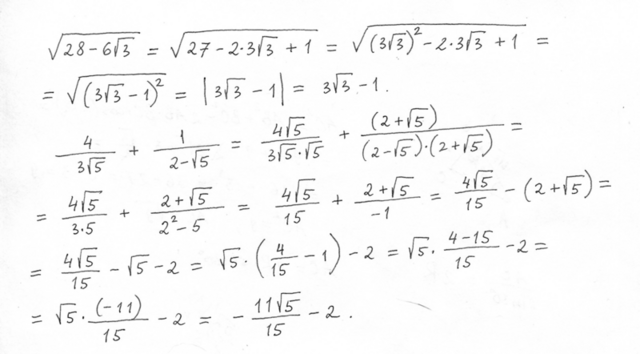 √(28 − 6√3) = √(27 − 2·3√3 + 1) = √((3√3)² − 2·3√3 + 1) =
= √((3√3 − 1)²) = |3√3 − 1| = 3√3 − 1.
4/(3√5) + 1/(2−√5) = 4√5/(3√5·√5) + (2+√5)/((2−√5)·(2+√5)) =
= 4√5/(3·5) + (2+√5)/(2²−5) = 4√5/15 + (2+√5)/(−1) = 4√5/15 − (2+√5) =
= 4√5/15 − √5 − 2 = √5·(4/15 − 1) − 2 = √5·(4−15)/15 − 2 =
= √5·(−11)/15 − 2 = − 11√5/15 − 2.